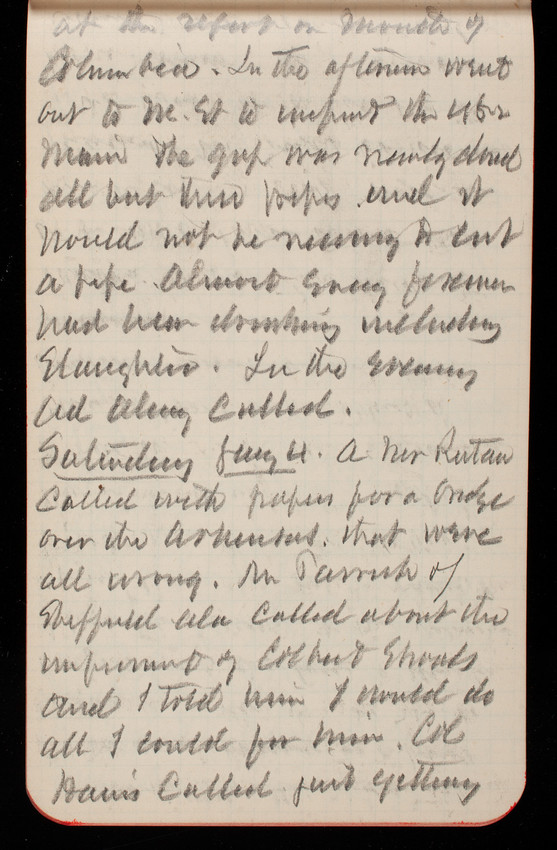 at the report on mouth of
Columbia. In the afternoon went
out to N.E. St to inspect the 48in
main the gap was nearly closed
all but three pipes and it
would not be necessary to cut
a pipe. Almost every foreman
had been drinking including
Slaughter. In the evening
Ad Alney called.
Saturday Jany 4. A Mr Rutan
called with papers for a bridge
over the Arkansas. that were
all wrong. Mr Parrish of
Sheffield Ala called about the
improvmt of Colbert Shoals
and I told him I would do
all I could for him. Col
Hains called just getting